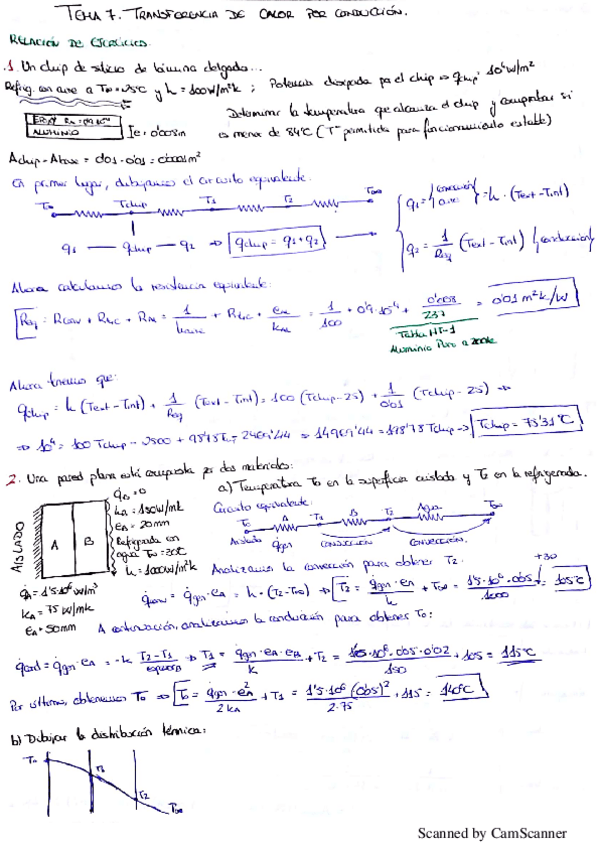 TEMA 7. TRANSFERENCIA DE CALOR POR CONDUCCIÓN.
RELACIÓN DE EJERCICIOS.
1. Un chip de silicio de lámina delgada...
Refrig. con aire a T∞ = 25°C y h = 100W/m²K ; Potencia disipada por el chip ⇒ q chip: 10⁴ W/m²
Determinar la temperatura que alcanza el chip y comprobar si
es menor de 84°C (Tª permitida para funcionamiento estable)
ALUMINIO
Ie = 0'008m
Achip = Abase = 0'01 · 0'01 = 0'0001 m²
En primer lugar, dibujamos el circuito equivalente:
T∞ Tchip T1 T2 T∞
q1 — qchip — q2 ⇒ qchip = q1 + q2
q1 = = h · (Text - Tint)
q2 = 1/Req (Text - Tint) conducción
Ahora calculamos la resistencia equivalente:
Req = Rconv + Rt,c + RAl = 1/haire + Rt,c + eAl/kAl = 1/100 + 0'9·10⁻⁴ + 0'008/237 = 0'01 m²K/W
Tabla HT-1
Aluminio Puro a 300K
Ahora tenemos que:
qchip = h (Text - Tint) + 1/Req (Text - Tint) = 100 (Tchip - 25) + 1/0'01 (Tchip - 25) ⇒
⇒ 10⁴ = 100 Tchip - 2500 + 98'78 Tc - 2469'44 ⇒ 14969'44 = 198'78 Tchip → Tchip = 75'31°C
2. Una pared plana está compuesta por dos materiales:
a) Temperatura T0 en la superficie aislada y T2 en la refrigerada.
AISLADO
A B
q̇B = 0
kB = 150 W/mK
eB = 20mm
Refrigerada con
agua T∞ = 30°C
h = 1000W/m²K
q̇A = 1'5·10⁶ W/m³
kA = 75 W/mK
eA = 50mm
Circuito equivalente:
T0 A T1 B T2 Agua T∞
Aislado q̇gen CONDUCCIÓN CONVECCIÓN
Analizamos la convección para obtener T2:
q̇conv = q̇gen · eA = h · (T2 - T∞) ⇒ T2 = q̇gen · eA / h + T∞ = 1'5·10⁶·0'05 / 1000 + 30 = 105°C
A continuación, analizamos la conducción para obtener T0:
q̇cond = q̇gen · eA = -k T2 - T1 / espesor ⇒ T1 = q̇gen · eA · eB / k + T2 = 1'5·10⁶·0'05·0'02 / 150 + 105 = 115°C
Por último, obtenemos T0 ⇒ T0 = q̇gen · eA² / 2 kA + T1 = 1'5·10⁶ (0'05)² / 2·75 + 115 = 140°C
b) Dibujar la distribución térmica:
T0
T1
T2
T∞
Scanned by CamScanner